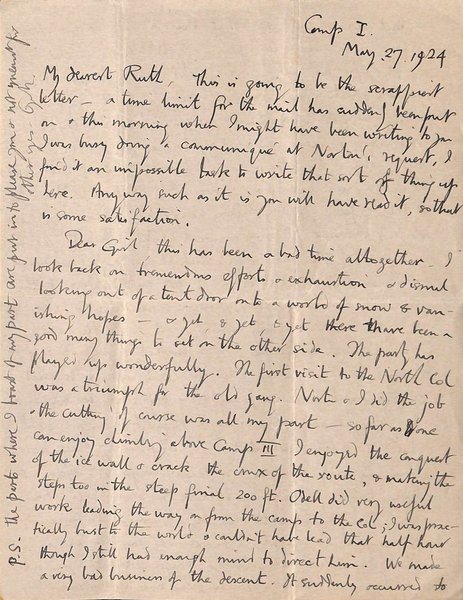 Camp I.
May 27. 1924
My dearest Ruth, This is going to be the scrappiest
letter – a time limit for the mail has suddenly been put
on & this morning when I might have been writing to you
I was busy doing a communiqué at Norton's request, I
find it an impossible task to write that sort of thing up
here. Anyway such as it is you will have read it, so that
is some satisfaction.
Dear Girl this has been a bad time altogether – I
look back on tremendous efforts & exhaustion & dismal
looking out of a tent door onto a world of snow & van-
ishing hopes – & yet & yet & yet there have been a
good many things to set on the other side. The party has
played up wonderfully. The first visit to the North Col
was a triumph for the old gang. Norton & I did the job
& the cutting of course was all my part – so far as one
can enjoy climbing above Camp III I enjoyed the conquest
of the ice wall & crack, the crux of the route, & making the
steps too in the steep final 200 ft. Odell did very useful
work leading the way on from the camp to the Col; I was prac-
tically bust to the world & couldn't have lead that half hour
though I still had enough mind to direct him. We made
a very bad business of the descent. It suddenly occurred to
P.S. The parts where I boast of my part are put in to please you & not meant for
other eyes G.M.